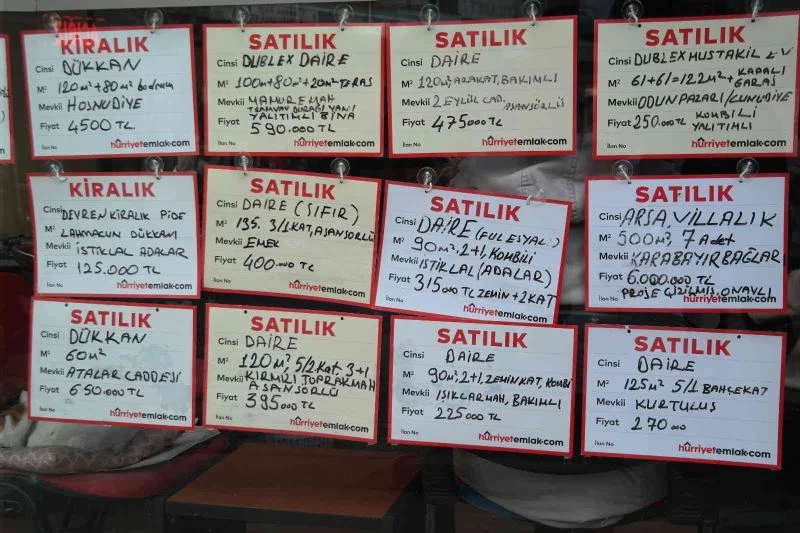 KİRALIK
Cinsi DÜKKAN
M² 120m²+80m² bodrum
Mevkii HOŞNUDİYE
Fiyat 4500 TL
İlan No hürriyetemlak.com
SATILIK
Cinsi DUBLEX DAİRE
M² 100m+80m²+20m² TERAS
Mevkii MAMURE MAH
TRAMVAY DURAĞI YANI
YALITIMLI BİNA
Fiyat 590.000 TL
İlan No hürriyetemlak.com
SATILIK
Cinsi DAİRE
M² 120m², ARAKAT, BAKIMLI
Mevkii 2 EYLÜL CAD. ASANSÖRLÜ
Fiyat 475000 TL
İlan No hürriyetemlak.com
SATILIK
Cinsi DUBLEX MUSTAKİL EV
M² 61+61=122m²+ KAPALI
GARAJ
Mevkii ODUNPAZARI/CUNUDİYE
Fiyat 250.000 TL KOMBİLİ
YALITIMLI
İlan No hürriyetemlak.com
KİRALIK
Cinsi DEVREN KİRALIK PİDE
M² LAHMACUN DÜKKANI
Mevkii İSTİKLAL ADALAR
Fiyat 125.000 TL
İlan No hürriyetemlak.com
SATILIK
Cinsi DAİRE (SIFIR)
M² 135. 3/1 KAT, ASANSÖRLÜ
Mevkii EMEK
Fiyat 400.000 TL
İlan No hürriyetemlak.com
SATILIK
Cinsi DAİRE (FUL EŞYALI)
M² 90m², 2+1, KOMBİLİ
Mevkii İSTİKLAL (ADALAR)
Fiyat 315000 TL ZEMİN+2 KAT
İlan No hürriyetemlak.com
SATILIK
Cinsi ARSA, VİLLALIK
M² 500m², 7 Adet
Mevkii KARABAYIR BAĞLAR
Fiyat 6.000.000 TL
PROJE ÇİZİLMİŞ, ONAYLI
İlan No hürriyetemlak.com
SATILIK
Cinsi DÜKKAN
M² 60m²
Mevkii ATALAR CADDESİ
Fiyat 650.000 TL
İlan No hürriyetemlak.com
SATILIK
Cinsi DAİRE
M² 120m², 5/2 Kat 3+1
Mevkii KIRMIZI TOPRAK MAH
ASANSÖRLÜ
Fiyat 395000 TL
İlan No hürriyetemlak.com
SATILIK
Cinsi DAİRE
M² 90m², 2+1, ZEMİN KAT, KOMBİ
Mevkii IŞIKLAR MAH, BAKIMLI
Fiyat 225000 TL
İlan No hürriyetemlak.com
SATILIK
Cinsi DAİRE
M² 125m² 5/1 BAHÇE KAT
Mevkii KURTULUŞ
Fiyat 270 000
İlan No hürriyetemlak.com